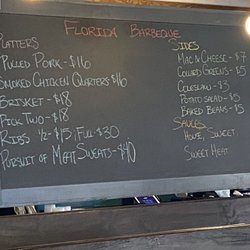 FLORIDA BARBEQUE
PLATTERS
PULLED PORK - $16
SMOKED CHICKEN QUARTERS $16
BRISKET - $18
PICK TWO - $18
RIBS ½ - $15, FULL $30
PURSUIT OF MEAT SWEATS - $40
SIDES
MAC N CHEESE - $7
COLLARD GREENS - $5
COLESLAW - $3
POTATO SALAD - $5
BAKED BEANS - $5
SAUCES
HOUSE, SWEET,
SWEET HEAT